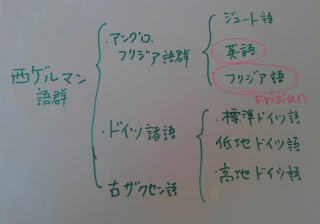 西ゲルマン
語群
・アングロ、
フリジア語群
ジュート語
英語
フリジア語
Frisian
・ドイツ諸語
・標準ドイツ語
低地ドイツ語
・高地ドイツ語
古ザクセン語